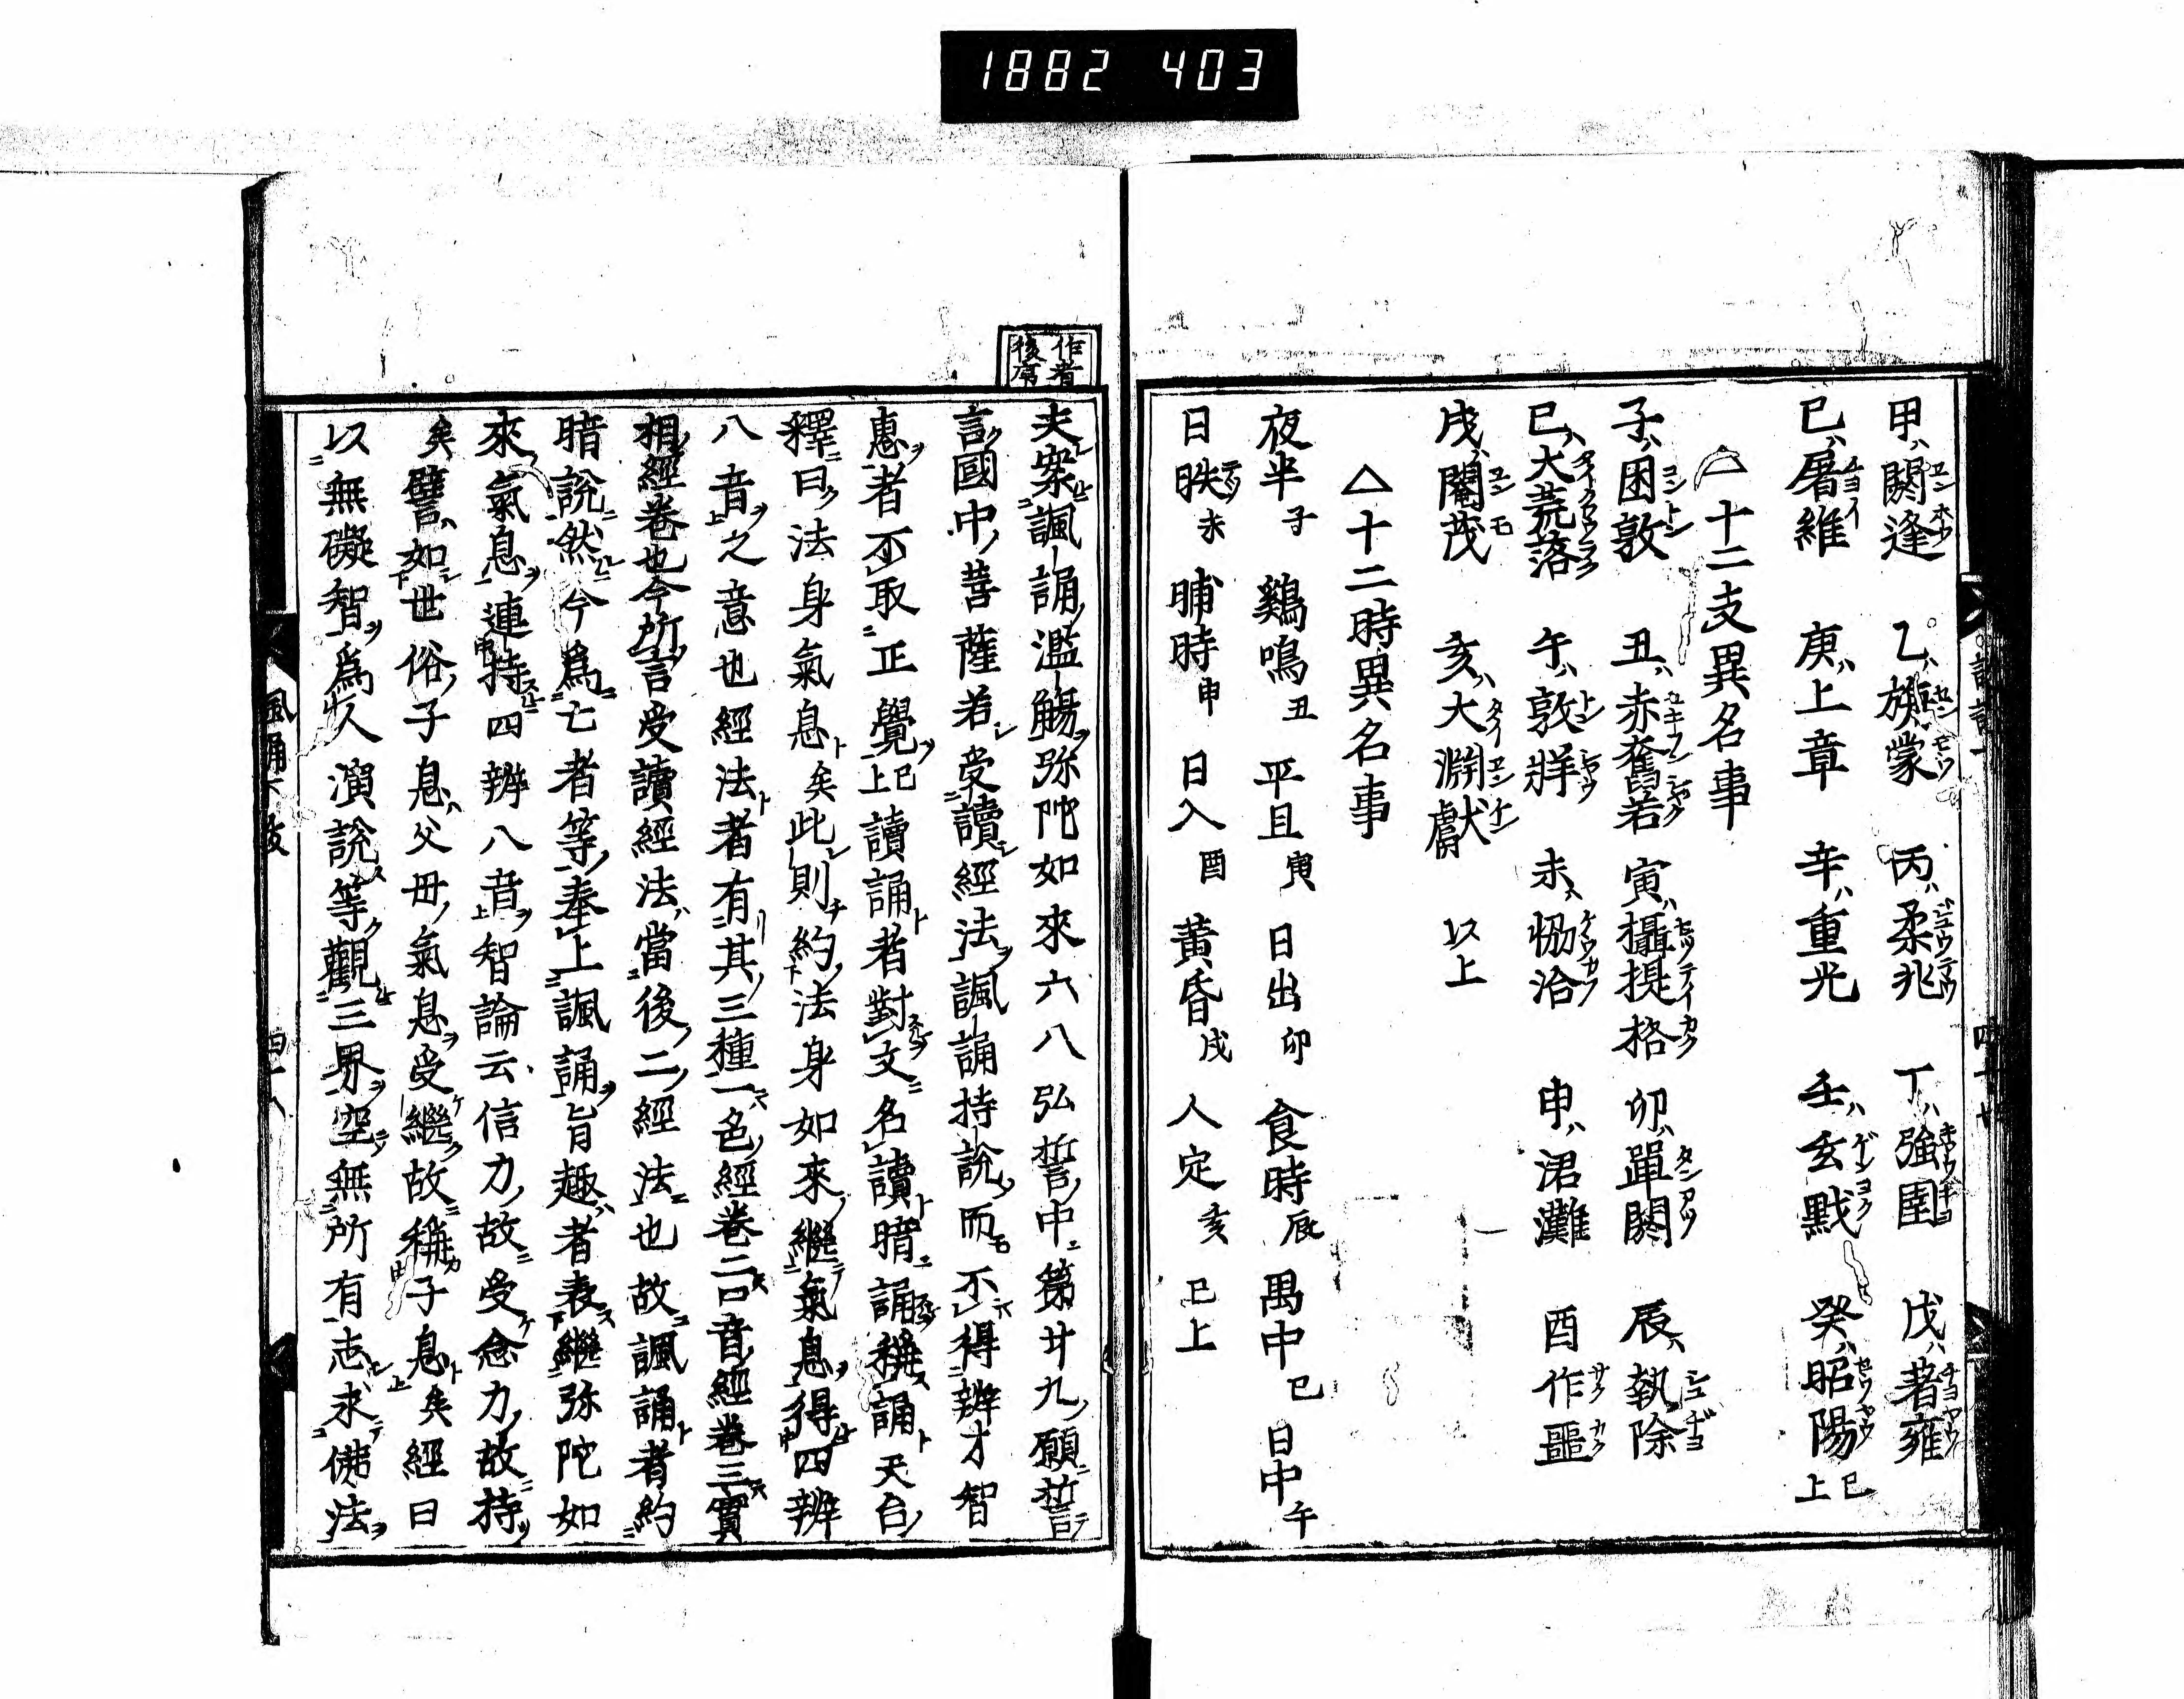 1882 403
甲ハ閼逢 乙ハ旃蒙 丙ハ柔兆 丁ハ強圉 戊ハ著雍
己ハ屠維 庚ハ上章 辛ハ重光 壬ハ玄黓 癸ハ昭陽 已上
△十二支異名事
子ハ困敦 丑ハ赤奮若 寅ハ攝提格 卯ハ單閼 辰ハ執除
巳ハ大荒落 午ハ敦牂 未ハ恊洽 申ハ涒灘 酉作噩
戌ハ閹茂 亥ハ大淵獻 以上
△十二時異名事
夜半子 鷄鳴丑 平旦寅 日出卯 食時辰 禺中巳 日中午
日昳未 晡時申 日入酉 黄昏戌 人定亥 已上
作者
後席
夫案諷誦濫觴弥陀如來六八弘誓中第廿九願誓
言國中菩薩若受讀經法諷誦持說而不得辨才智
惠者不取正覺已上讀誦者對文名讀暗誦稱誦天台
釋曰法身氣息矣此則約法身如來繼氣息得四辨
八音之意也經法者有其三種一色經巻二口音經巻三實
相經巻也今所言受讀經法當後二經法也故諷誦者約
暗說然今爲亡者等奉上諷誦旨趣者表繼弥陀如
來氣息連持四辨八音智論云信力故受念力故持
矣譬如世俗子息父母氣息受繼故稱子息矣經曰
以無礙智爲人演說等觀三界空無所有志求佛法